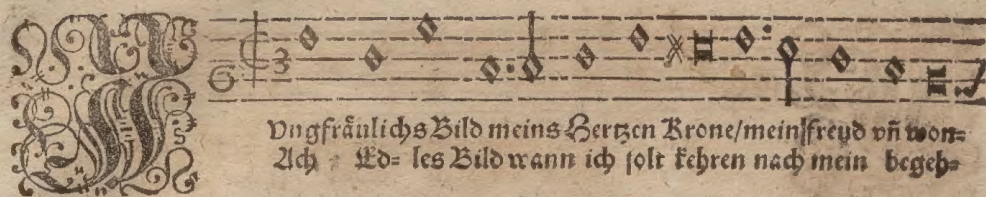 J
Vngfräulichs Bild meins Hertzen Krone/mein freud vñ won=
Ach Ed= les Bild wann ich solt kehren nach mein begeh=